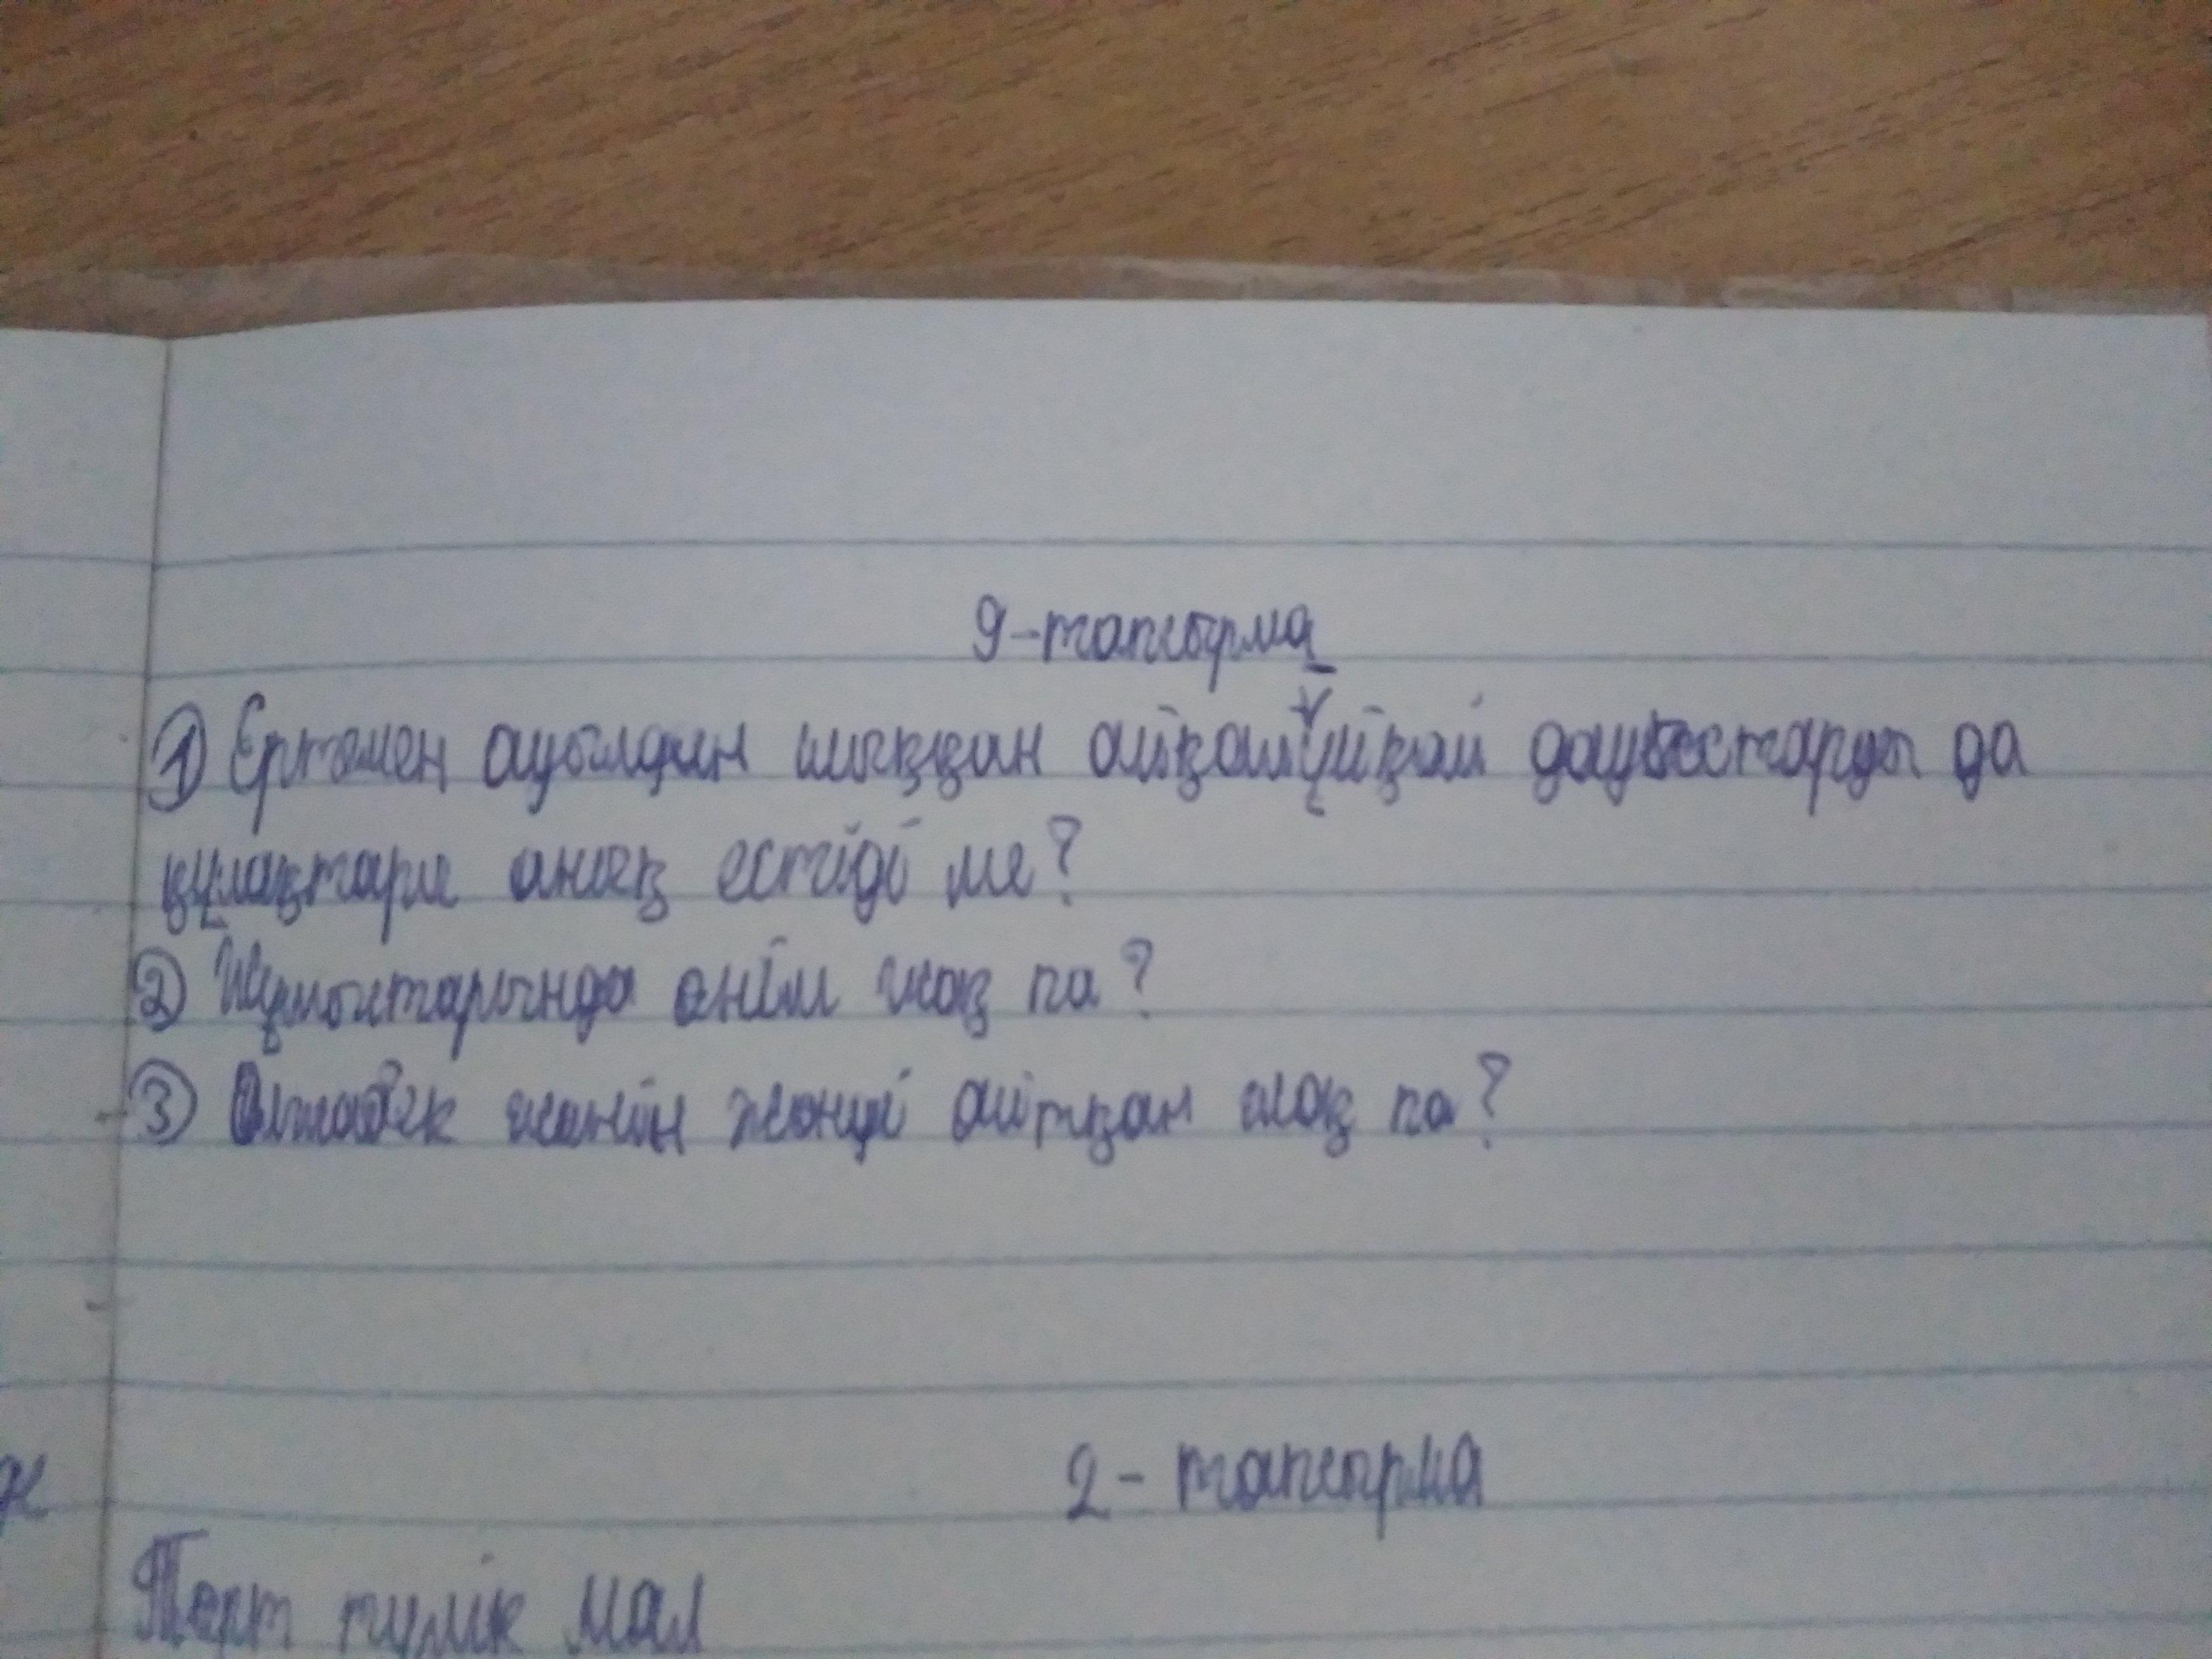 9-тапсырма
① Ертемен ауылдан шыққан айқай ұйқай дауыстарды да
құлақтары анық естіді ме?
② Жұмыстарында өнім жоқ па?
③ Олжабек жөнін жөнді айтқан жоқ па?
2- тапсырма
Төрт түлік мал